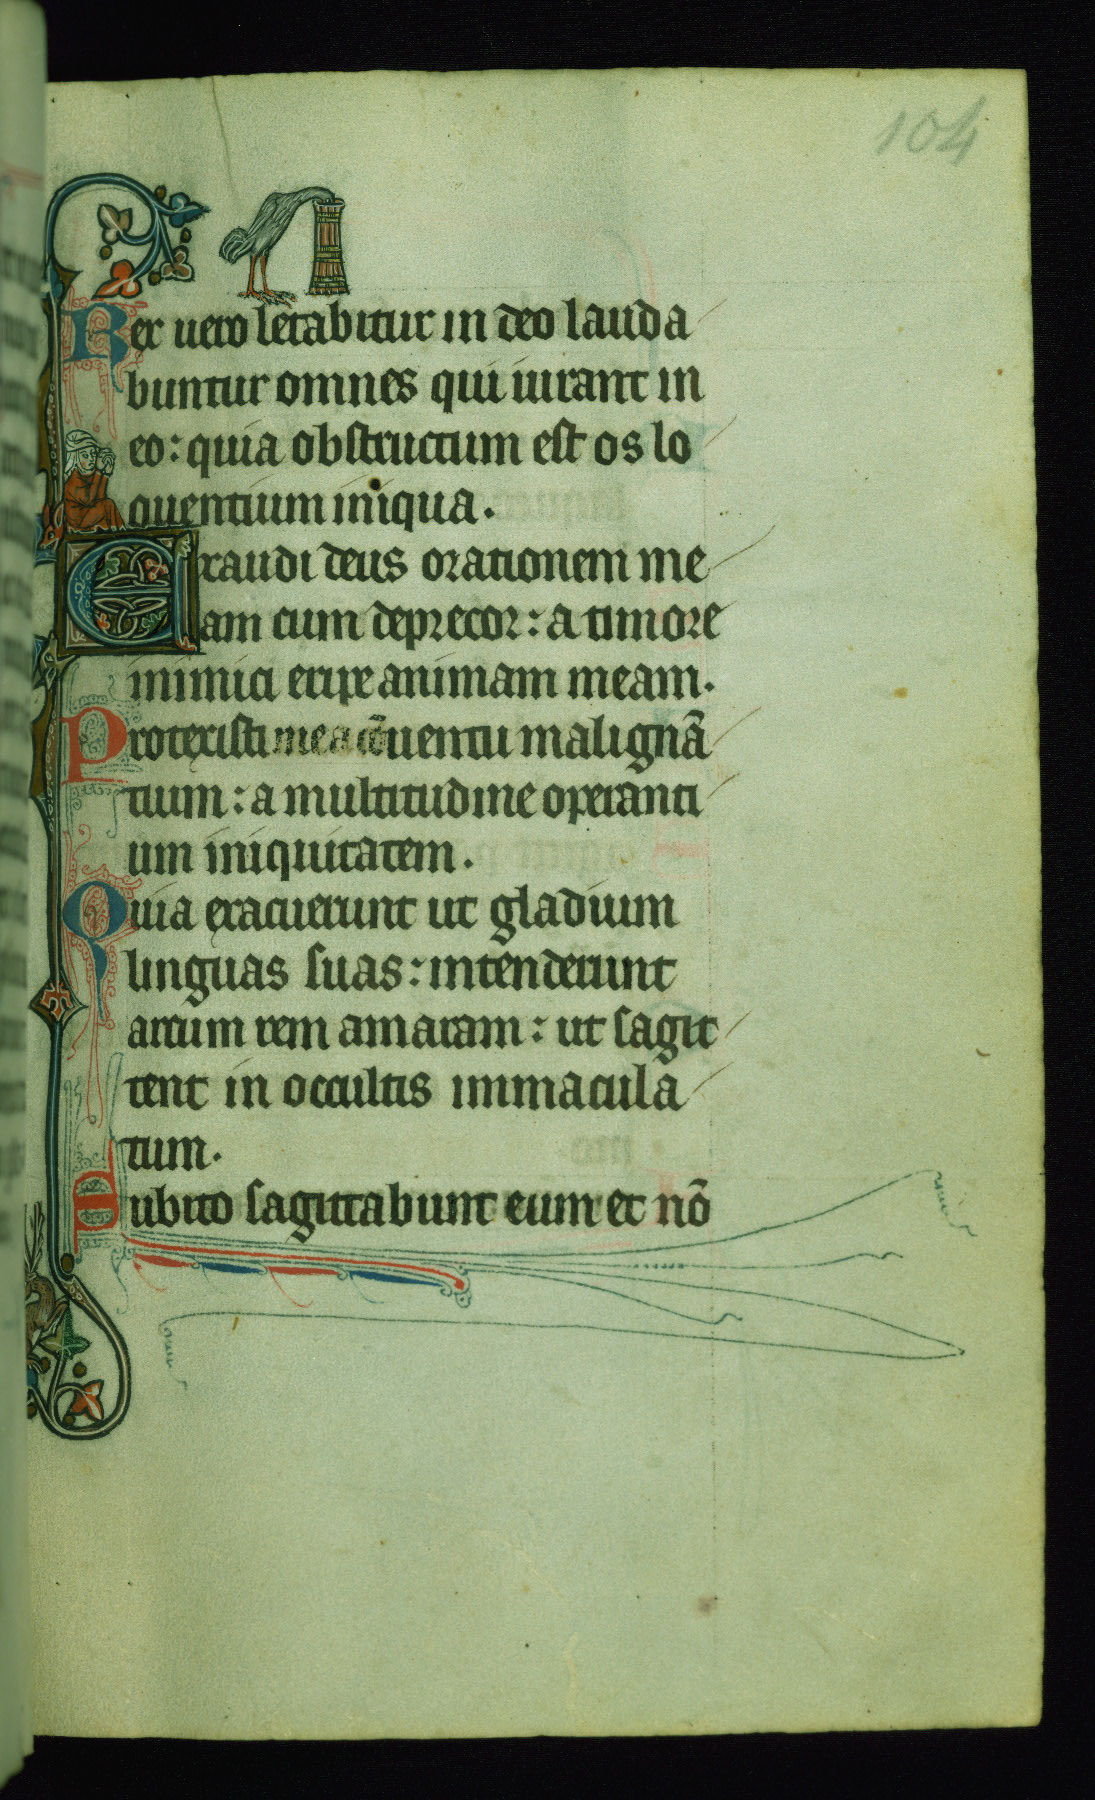 104
Rex uero letabitur in deo lauda
buntur omnes qui iurant in
eo: quia obstructum est os lo
quentium iniqua.
Exaudi deus orationem me
am cum deprecor: a timore
inimici eripe animam meam.
Protexisti me a cōuentu malignā
tium: a multitudine operanti
um iniquitatem.
Quia exacuerunt ut gladium
linguas suas: intenderunt
arcum rem amaram: ut sagit
tent in occultis immacula
tum.
Subito sagittabunt eum et nō